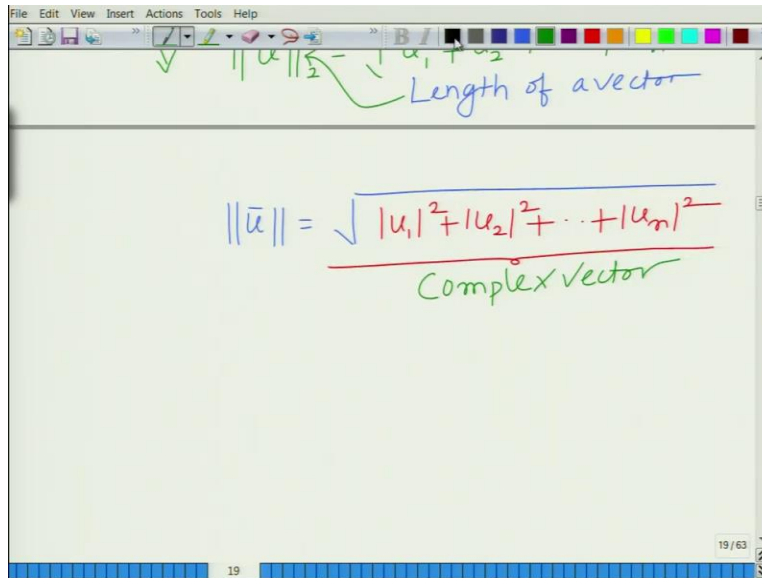 File Edit View Insert Actions Tools Help
B I
Length of a vector
||ū|| = √|u₁|²+|u₂|²+ ⋯ +|uₙ|²
Complex vector
19/63
19